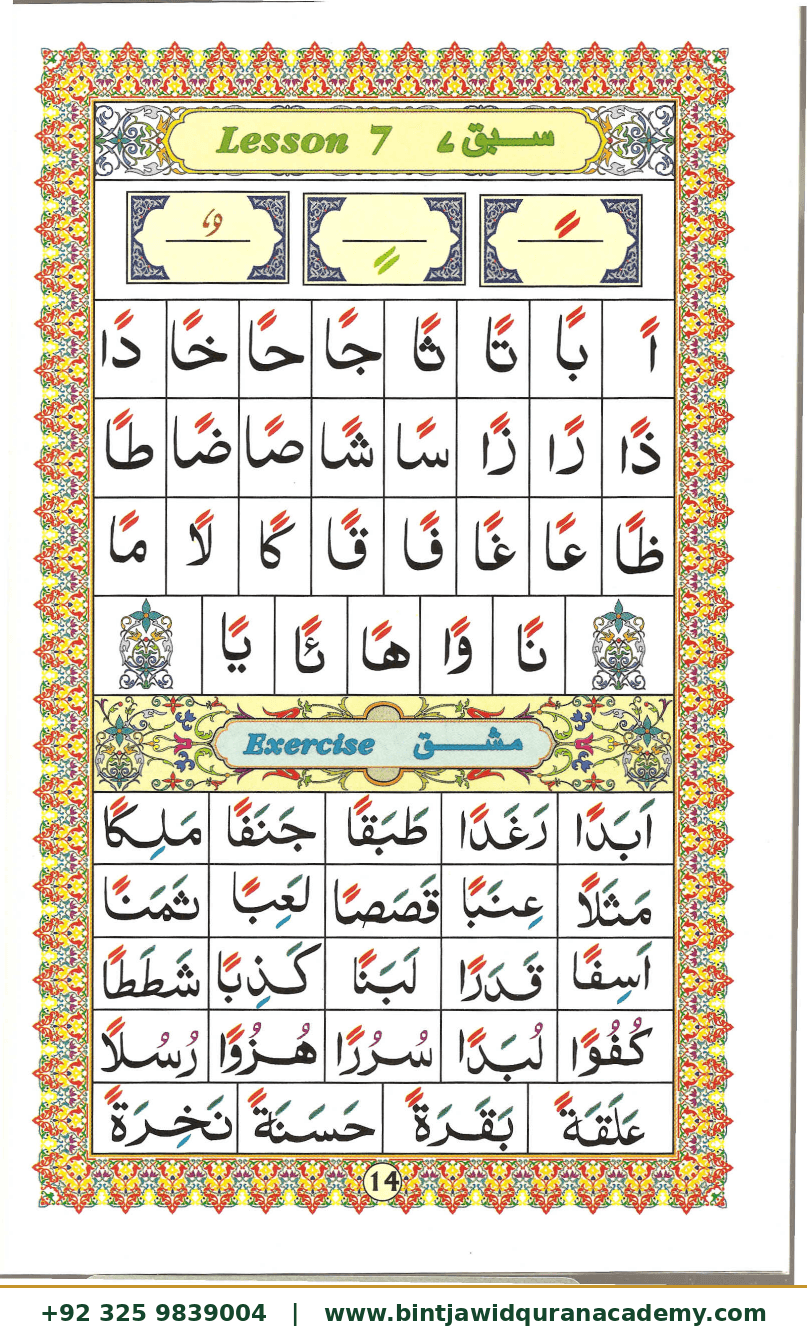 Lesson 7 سبق ۷
ـً ـٍ ـٌ
اً بًا تًا ثًا جًا حًا خًا دًا
ذًا رًا زًا سًا شًا صًا ضًا طًا
ظًا عًا غًا فًا قًا كًا لًا مًا
نًا وًا هًا ئًا يًا
Exercise مشق
اَبَدًا رَغَدًا طَبَقًا جَنَفًا مَلِكًا
مَثَلًا عِنَبًا قَصَصًا لَعِبًا ثَمَنًا
اَسِفًا قَدَرًا لَبَنًا كَذِبًا شَطَطًا
كُفُوًا لُبَدًا سُرُرًا هُزُوًا رُسُلًا
عَلَقَةً بَقَرَةً حَسَنَةً نَخِرَةً
14
+92 325 9839004 | www.bintjawidquranacademy.com